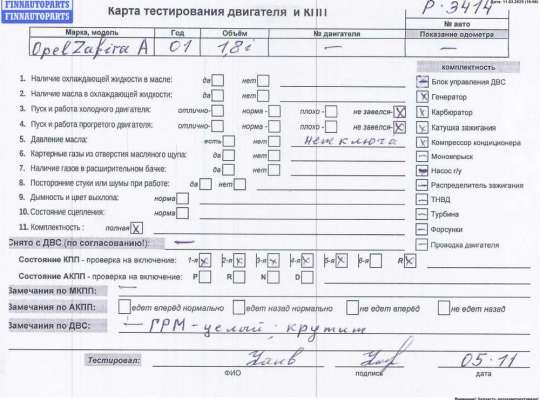 FINNAUTOPARTS
FINNAUTOPARTS
Карта тестирования двигателя и КПП
P-3414
№ авто
Марка, модель Год Объём № двигателя Показание одометра
Opel Zafira A 01 1,8i — —
комплектность
1. Наличие охлаждающей жидкости в масле: да нет
2. Наличие масла в охлаждающей жидкости: да нет
3. Пуск и работа холодного двигателя: отлично- норма - плохо - не завелся- X
4. Пуск и работа прогретого двигателя: отлично- норма - плохо - не завелся- X
5. Давление масла: есть нет нет ключа
6. Картерные газы из отверстия масляного щупа: да нет
7. Наличие газов в расширительном бачке: да нет
8. Посторонние стуки или шумы при работе: да нет
9. Дымность и цвет выхлопа: норма
10. Состояние сцепления: норма
11. Комплектность : полная X
— Блок управления ДВС
X Генератор
X Карбюратор
X Катушка зажигания
X Компрессор кондиционера
— Мономрыск
Насос г/у
— Распределитель зажигания
— ТНВД
— Турбина
— Форсунки
— Проводка двигателя
Снято с ДВС (по согласованию!): —
Состояние КПП - проверка на включение: 1-я X 2-я X 3-я X 4-я X 5-я X 6-я R X
Состояние АКПП - проверка на включение: P R N D
Замечания по МКПП: —
Замечания по АКПП: едет вперёд нормально едет назад нормально не едет вперёд не едет назад
Замечания по ДВС: — ГРМ - целый, крутит
Тестировал: 05.11
ФИО подпись дата